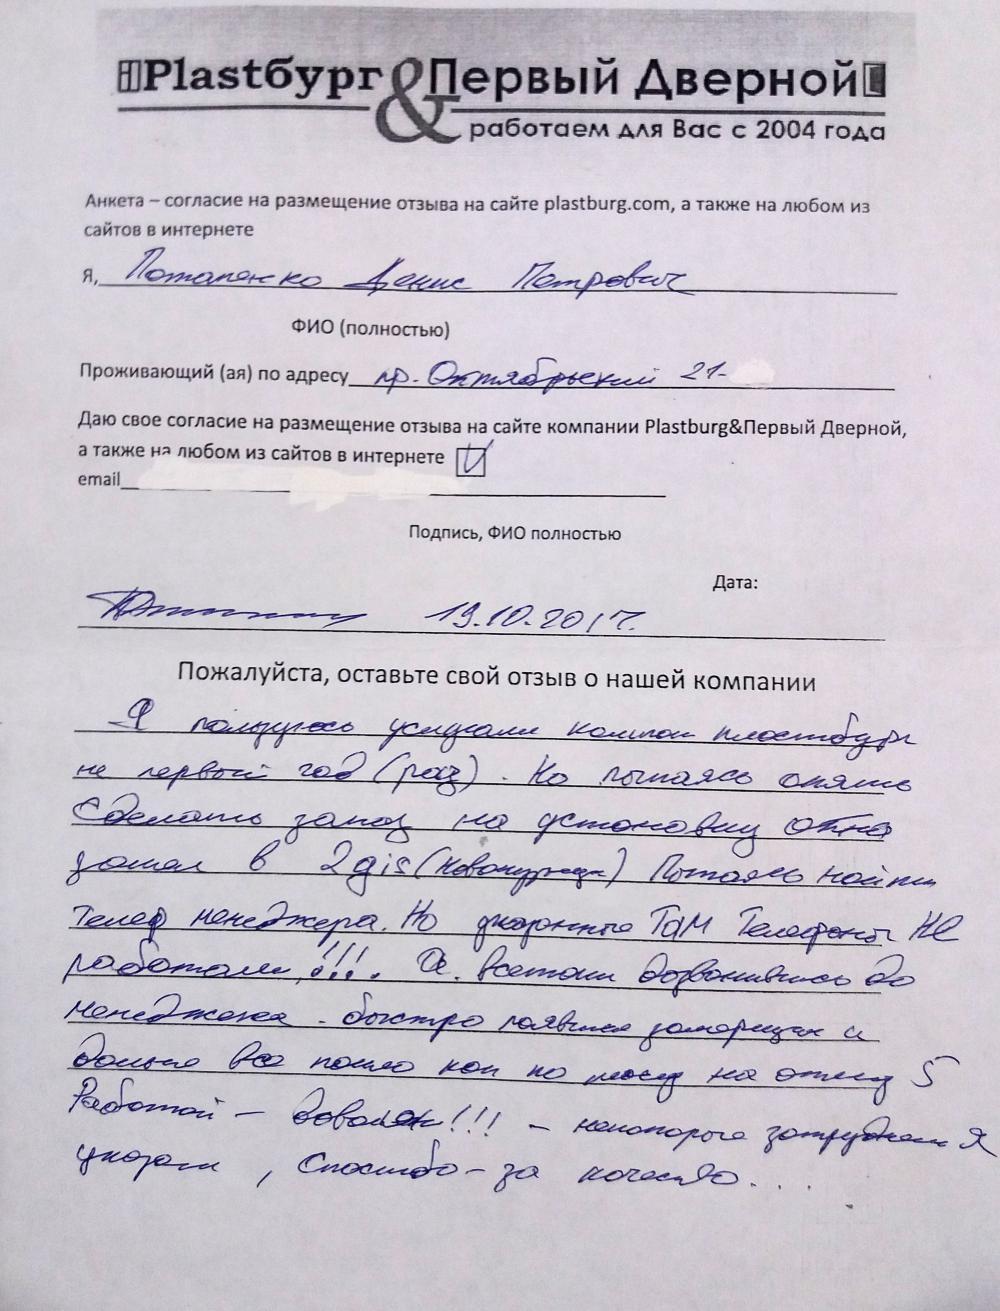 Plastбург & Первый Дверной
работаем для Вас с 2004 года
Анкета – согласие на размещение отзыва на сайте plastburg.com, а также на любом из
сайтов в интернете
Я, Потапенко Денис Петрович
ФИО (полностью)
Проживающий (ая) по адресу пр. Октябрьский 21-
Даю свое согласие на размещение отзыва на сайте компании Plastburg&Первый Дверной,
а также на любом из сайтов в интернете V
email
Подпись, ФИО полностью
Дата:
19.10.2017.
Пожалуйста, оставьте свой отзыв о нашей компании
Я пользуюсь услугами компан пластбург
не первый год (раз). Но пытаясь опять
Сделать заказ на установку окна
зашел в 2gis (Новокузнецк) Пытаясь найти
Телеф менеджера. Но указанные Там Телефоны НЕ
работали !!!. А всетаки дозвонившись до
менеджера - быстро появился замерщик и
дальше все пошло как по маслу на оценку 5
Работой - доволен!!! - некоторые затруднения Я
указал, Спасибо - за качество....